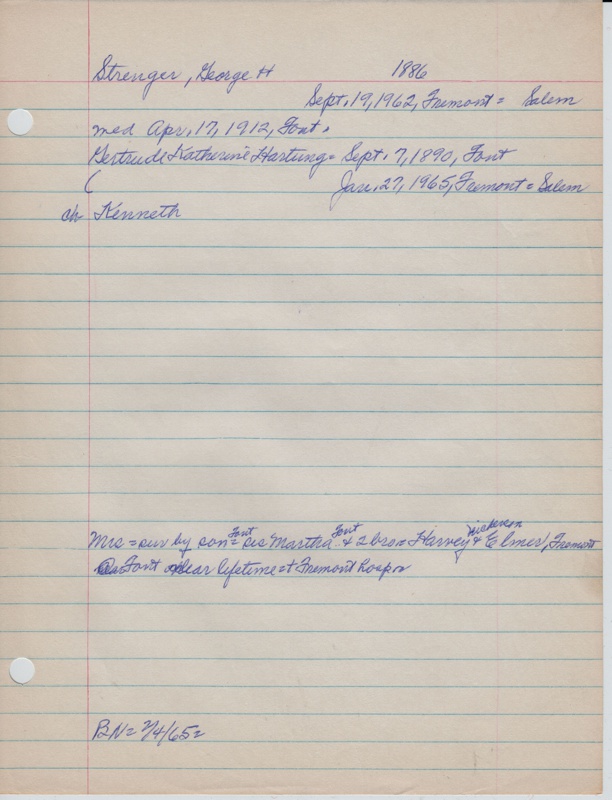 Strenger, George H 1886
Sept. 19, 1962, Fremont = Salem
med Apr. 17, 1912, Font.
Gertrude Katherine Hartung = Sept. 7, 1890, Font
( Jan. 27, 1965, Fremont = Salem
ch Kenneth
Font Font Nickerson
Mrs = sur by son = sis Martha & 2 bro = Harvey & Elmer, Fremont
Font lifetime = Fremont Hosp
BN = 2/4/65 =